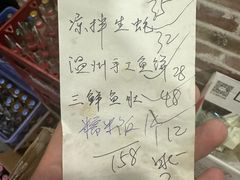 35
凉拌生蚝 32
温州手工鱼饼 28
三鲜鱼肚 48
糯米饭 12
158